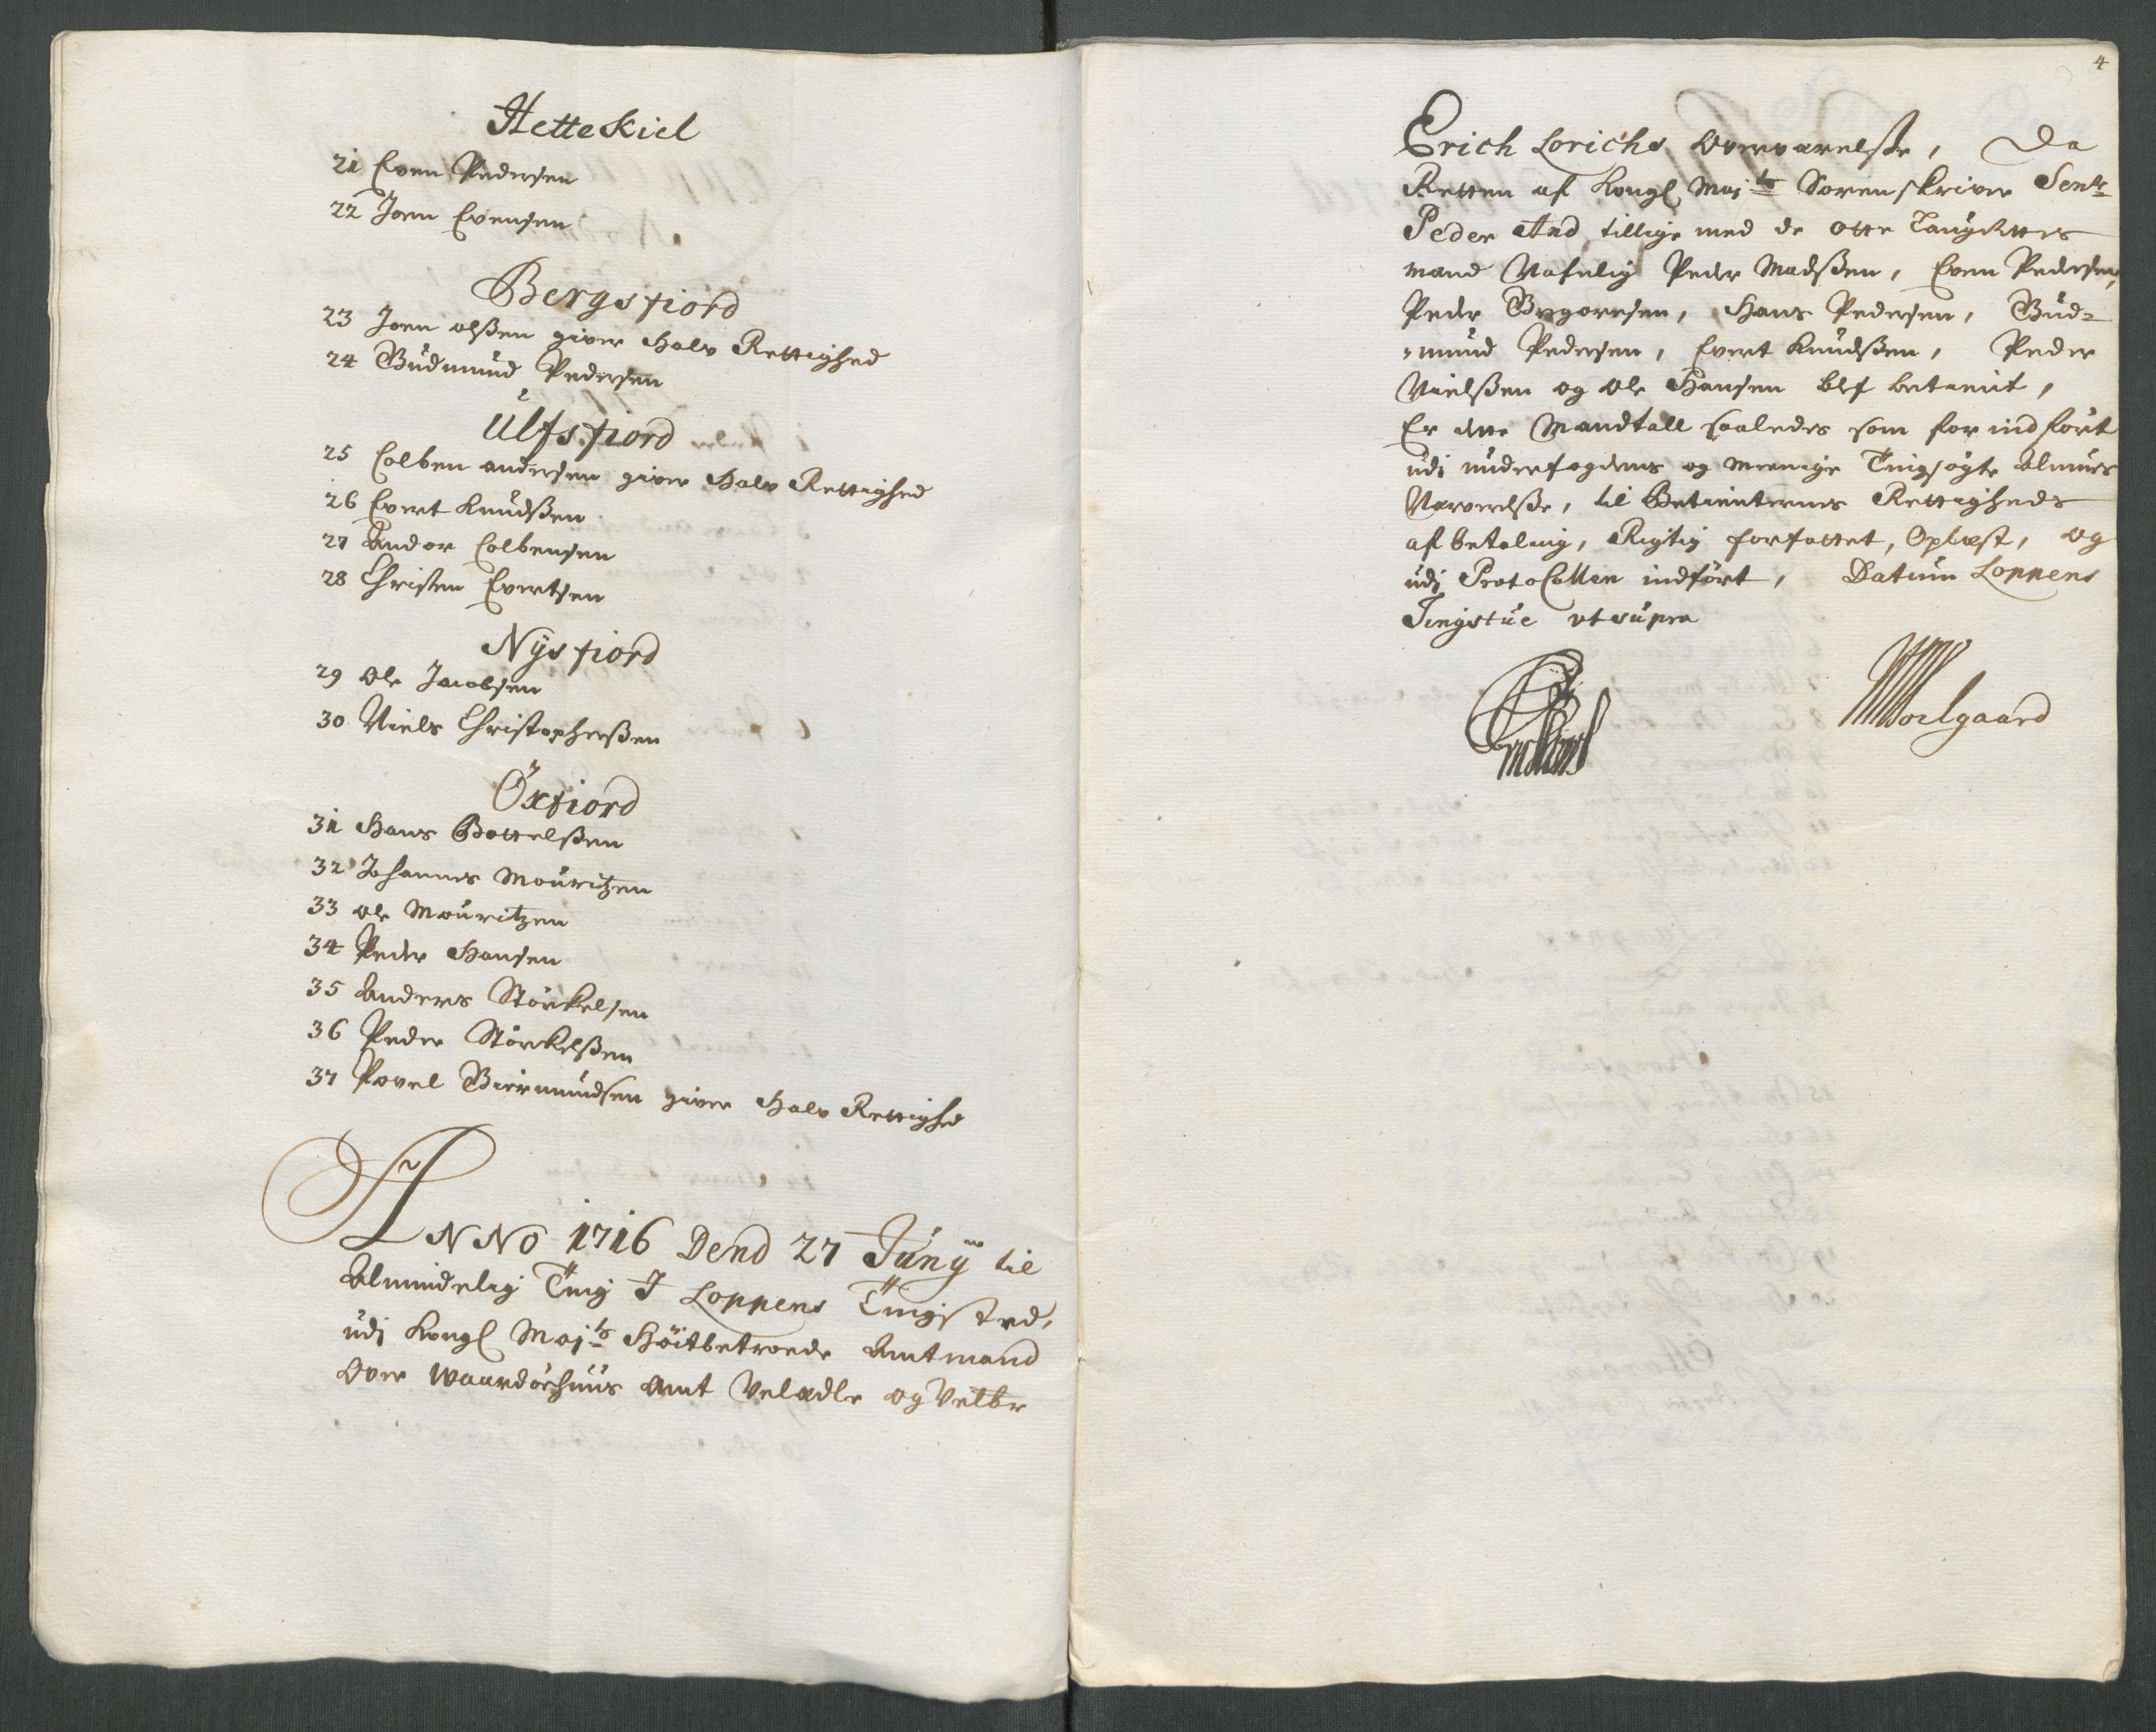 Hetteskiel
21 Even Pedersen
22 Joen Evensen
Bergsfiord
23 Joen olßen giver Halv Rettighed
24 Gudmund Pedersen
Ulfsfiord
25 Colben andersen giver Halv Rettighed
26 Evert Knudßen
27 Andor Colbensen
28 Christen Evertsen
Nÿsfiord
29 Ole Jacobsen
30 Niels Christopherßen
Öxfiord
31 Hans Bottelßen
32 Johannes Mouritzen
33 Ole Mouritzen
34 Peder Hansen
35 Anders Störckelsen
36 Peder Störckelßen
37 Povel Giermundsen giver Halv Rettighed
ANNO 1716 Dend 27 Junÿ til
Almindelig Ting I Loppens Tingsted,
udj Kongl Majts Höitbetroede Amtmand
Over Waardöehuus Amt Velædle og Velbr
4
Erich Lorichs Overværelße, Da
Retten af Kongl Majts Sorenskriver Senr
Peder And tillige med de otte Laugrettes
mænd Nafnlig Peder Madßen, Even Pedersen,
Peder Gregoresen, Hans Pedersen, Gud-
-mund Pedersen, Evert Knudßen, Peder
Nielßen og Ole Hansen blef betient,
Er dette Mandtall saaledes som for indfört
udj underfogdens og menige Tingsøgte Almues
Nærverelße, til Betienternes Rettigheds
afbetaling, Rigtig forfattet, Oplæst, og
udj ProtoCollen indfört, Datum Loppens
Tingstue ut supra
Woelgaard